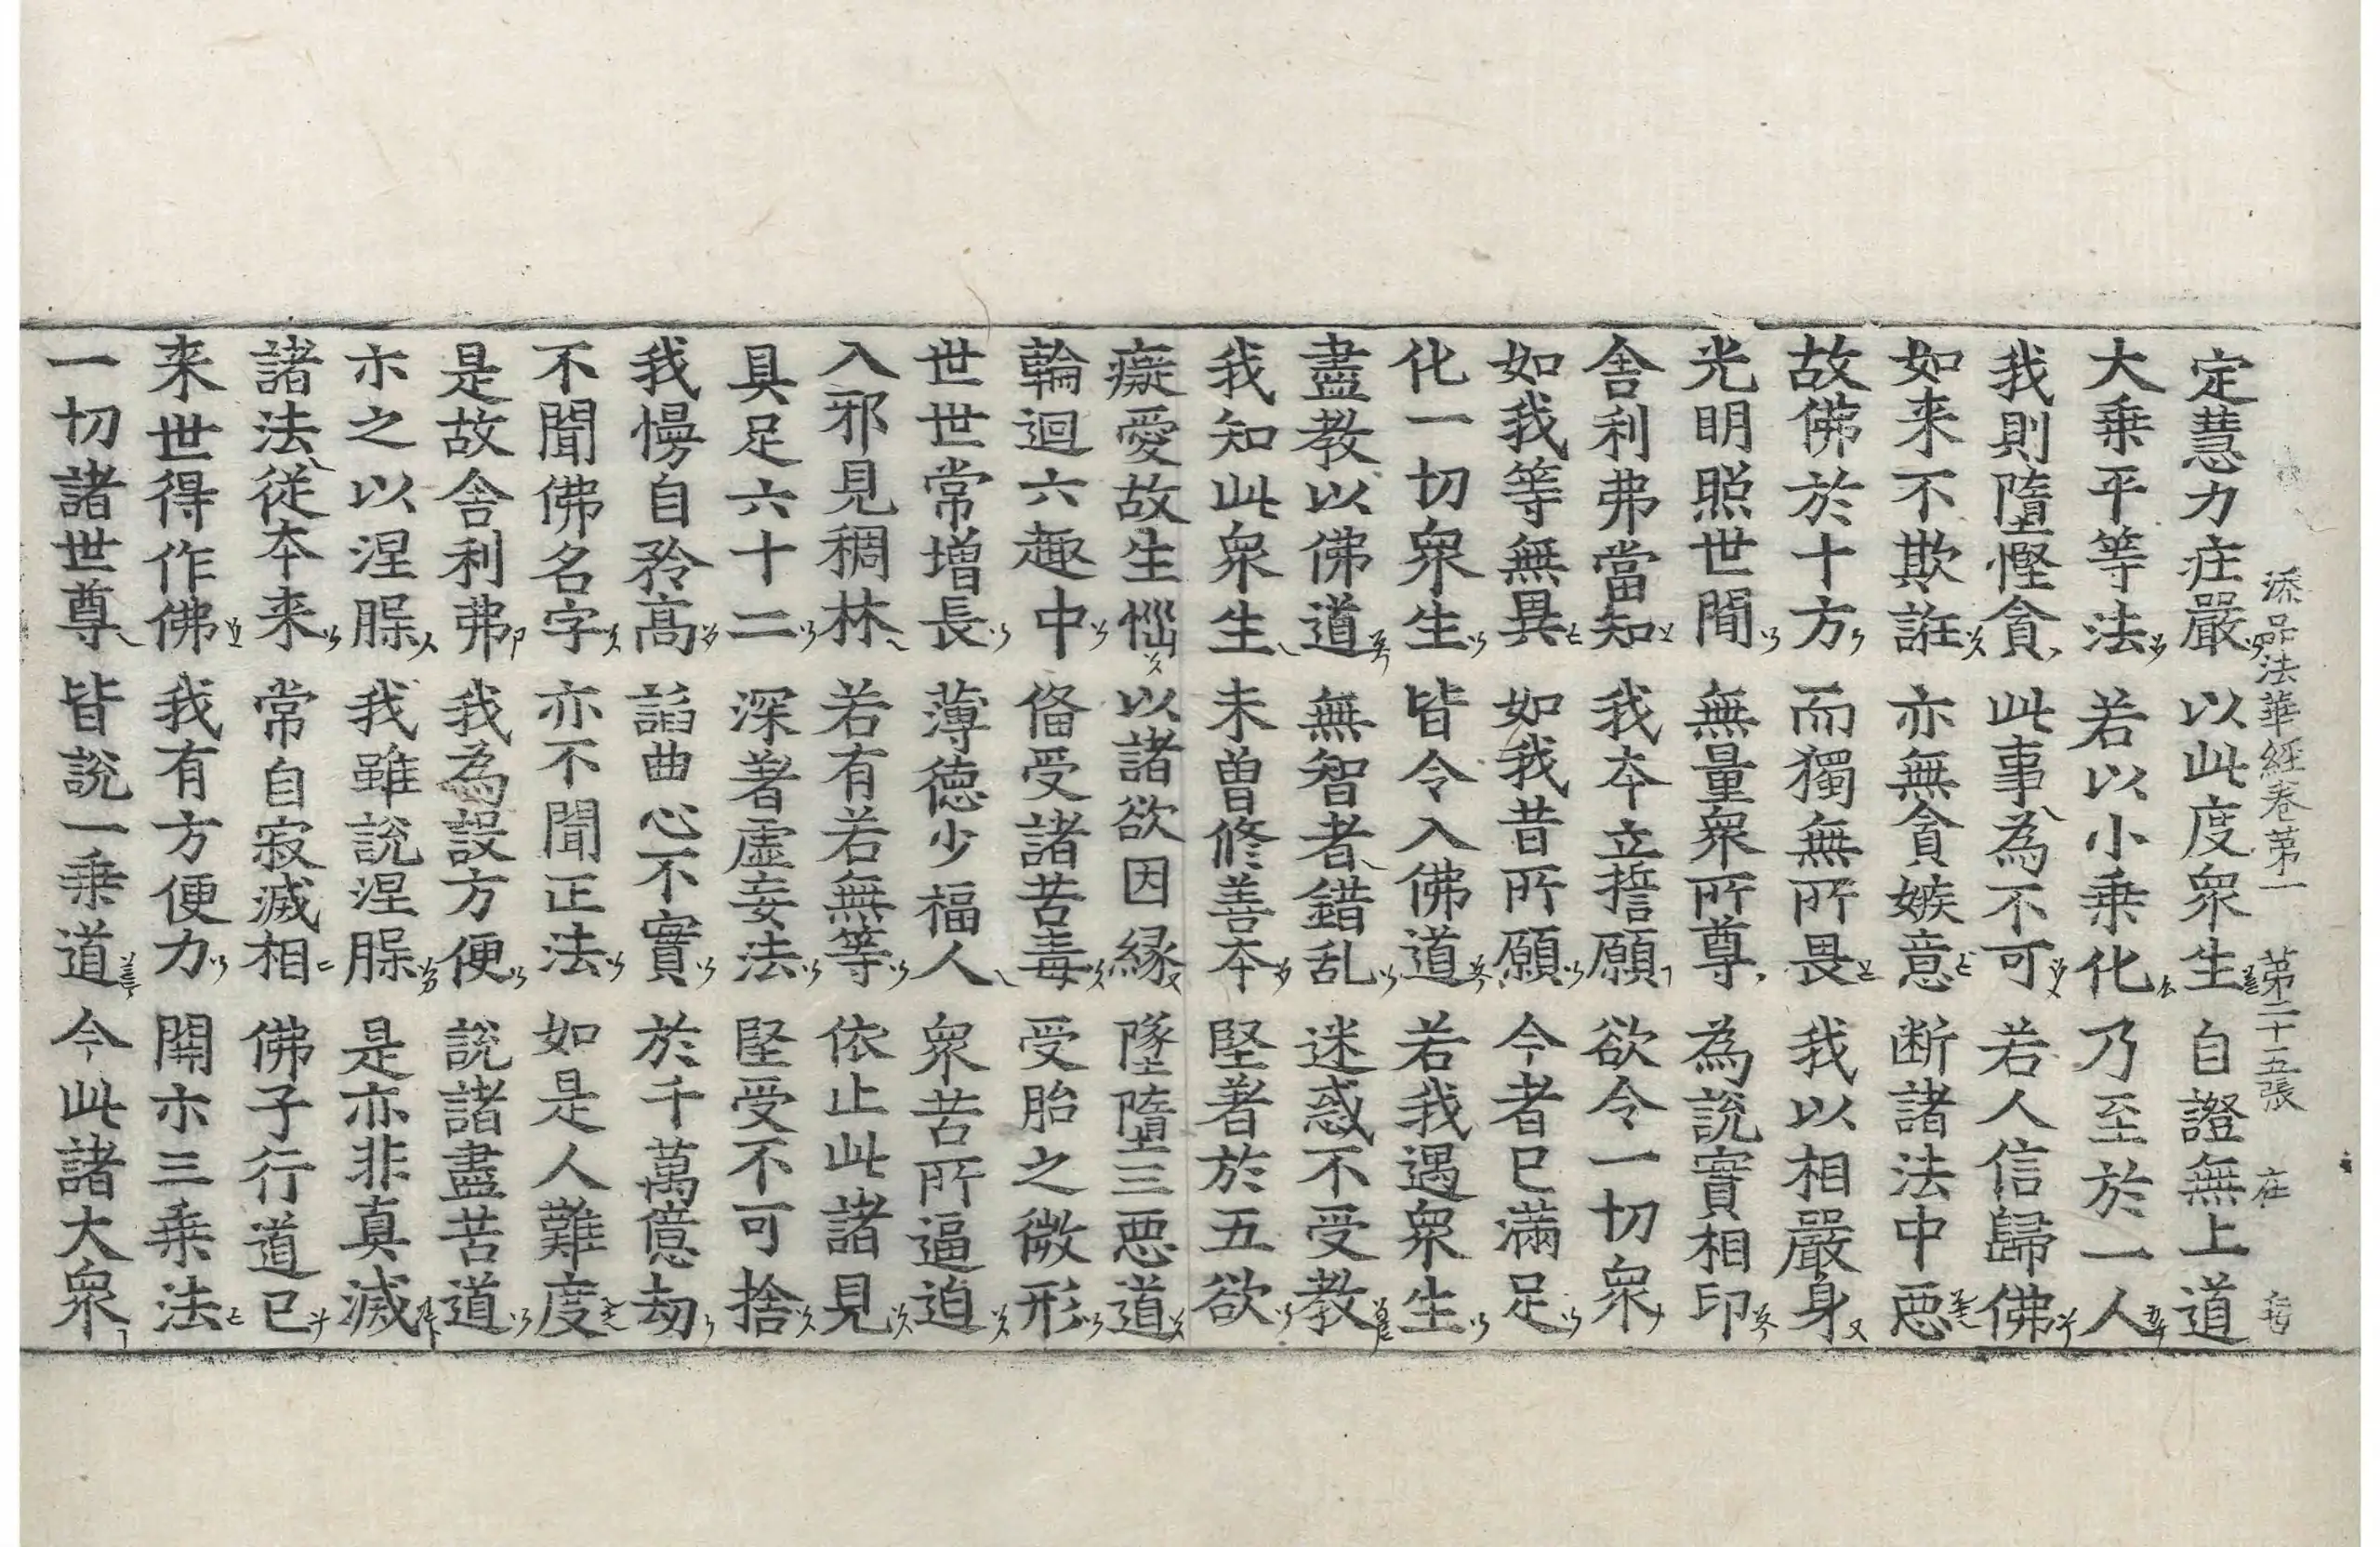 添品法華經卷第一 第二十五張 在
定慧力庄嚴 以此度衆生 自證無上道
大乗平等法 若以小乗化 乃至於一人
我則墮慳貪 此事為不可 若人信歸佛
如来不欺誑 亦無貪嫉意 断諸法中惡
故佛於十方 而獨無所畏 我以相嚴身
光明照世間 無量衆所尊 為說實相印
舎利弗當知 我本立誓願 欲令一切衆
如我等無異 如我昔所願 今者已滿足
化一切衆生 皆令入佛道 若我遇衆生
盡教以佛道 無智者錯乱 迷惑不受教
我知此衆生 未曽修善本 堅著於五欲
癡愛故生惱 以諸欲因縁 墜墮三惡道
輪迴六趣中 俻受諸苦毒 受胎之微形
世世常增長 薄徳少福人 衆苦所逼迫
入邪見稠林 若有若無等 依止此諸見
具足六十二 深著虚妄法 堅受不可捨
我慢自矜髙 諂曲心不實 於千萬億劫
不聞佛名字 亦不聞正法 如是人難度
是故舎利弗 我為設方便 說諸盡苦道
示之以涅槃 我雖說涅槃 是亦非真滅
諸法從本来 常自寂滅相 佛子行道已
来世得作佛 我有方便力 開示三乗法
一切諸世尊 皆說一乗道 今此諸大衆